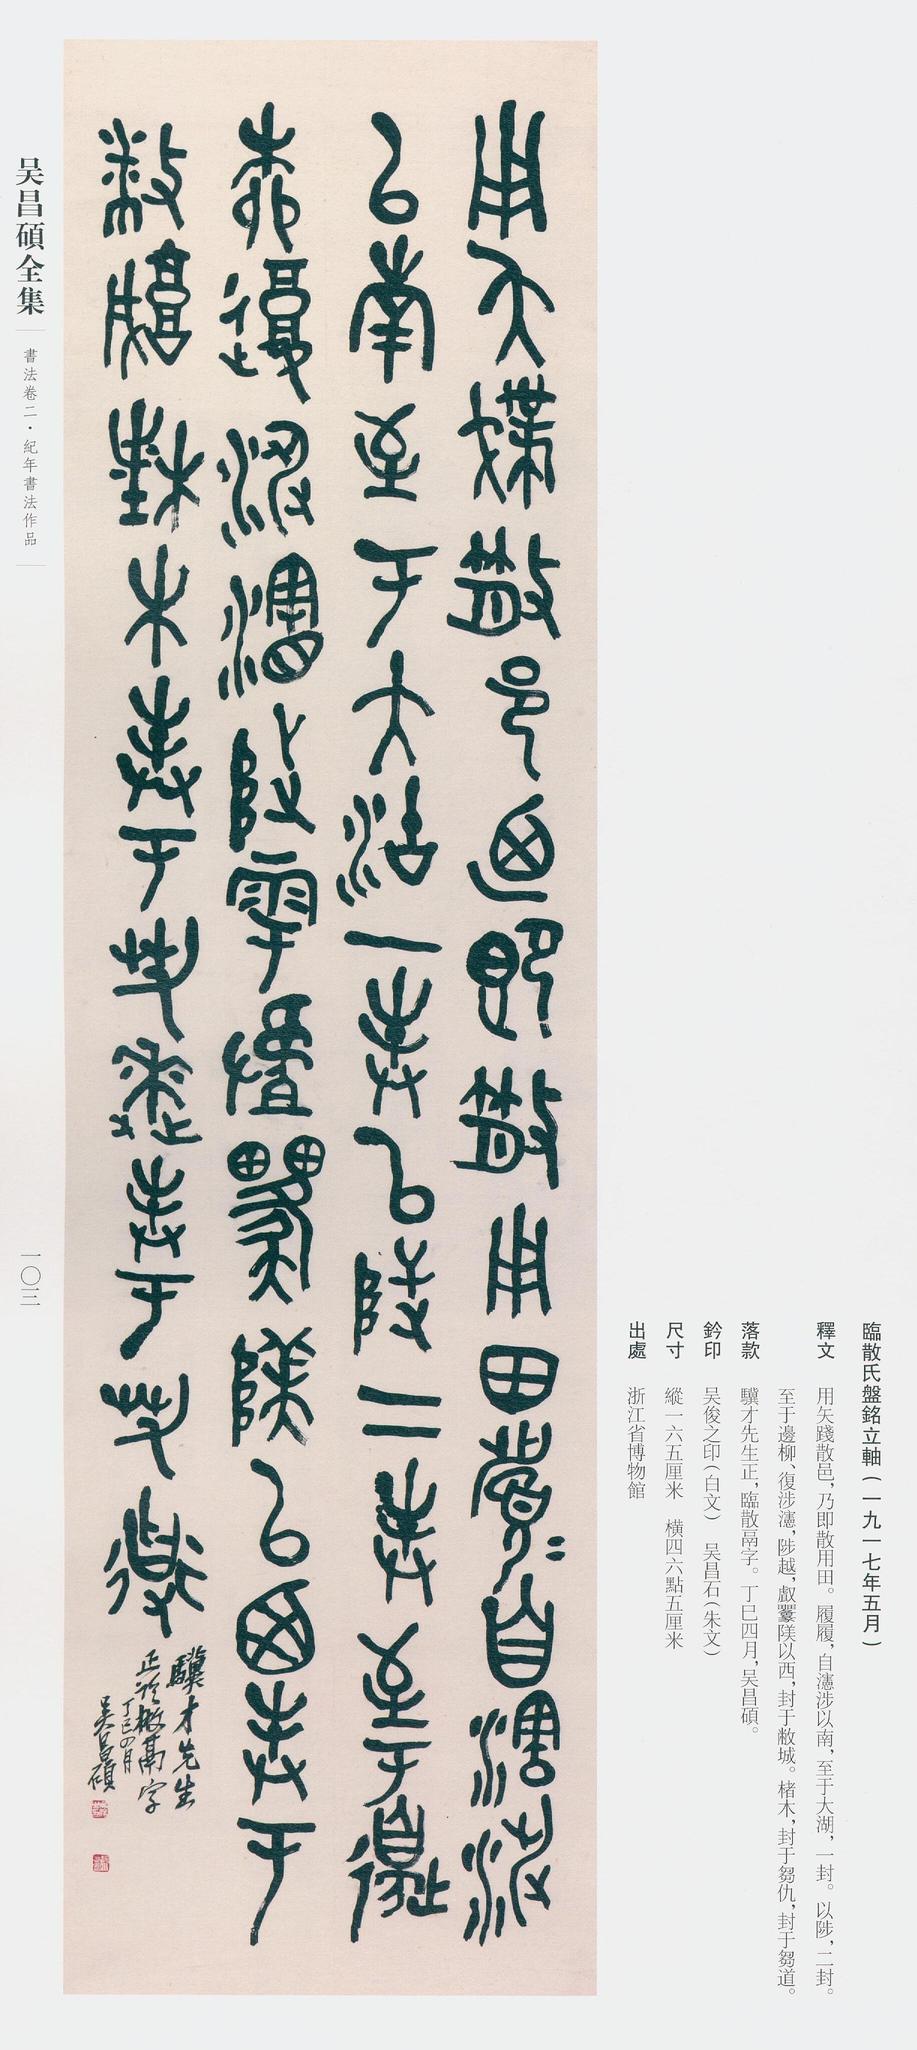 臨散氏盤銘立軸（一九一七年五月）
釋文　用矢踐散邑，乃即散用田。履履，自瀗涉以南，至于大湖，一封。以陟，二封。
至于邊柳、復涉瀗，陟越，䣜以西，封于敝城。楮木，封于芻仇，封于芻道。
落款　驥才先生正，臨散鬲字。丁巳四月，吴昌碩。
鈐印　吴俊之印（白文）　吴昌石（朱文）
尺寸　縱一六五厘米　橫四六點五厘米
出處　浙江省博物館
用夨撲散邑迺即散用田眉=自瀗涉
以南至于大沽一封以陟二封至于邊
柳復涉瀗陟雩以西封于
敝城楮木封于芻逨封于芻道
驥才先生
正臨散鬲字
丁巳四月
吴昌碩
吴昌碩全集
書法卷二·紀年書法作品
一〇三